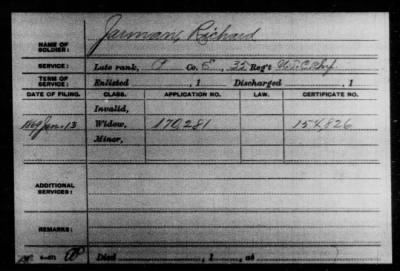 Jarman, Richard
NAME OF SOLDIER:
SERVICE: Late rank, P Co. E, 35 Reg't U.S.C. Inf.
TERM OF SERVICE: Enlisted , 1 Discharged , 1
DATE OF FILING. CLASS. APPLICATION NO. LAW. CERTIFICATE NO.
Invalid,
1869 Jan. 13 Widow, 170,281 154,826
Minor,
ADDITIONAL SERVICES:
REMARKS:
Died , 1 , at